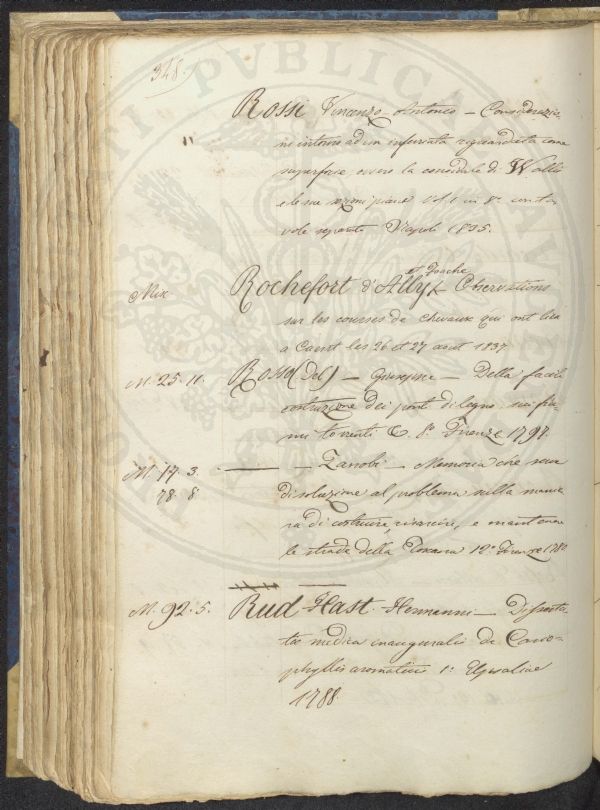 348.
Rossi Vincenzo Antonio – Considerazio-
ni intorno ad un infuriata riguardata come
superfice ovvero la conoidale di Wallis
e le sue sezioni piane Vol. 1 in 8º con ta-
vole separate Napoli 1835.
Mix Rochefort d'Ally et Gauche Observations
sur les courses de chevaux qui ont lieu
a Caen les 26 et 27 aout 1837
M. 25. 11. Rosso (Del) – Giuseppe – Della facile
costruzione dei ponti di legno sui fiu-
mi torrenti &. 8º Firenze 1797.
M. 17. 3. – Zanobi – Memoria che serve
78. 8 di soluzione al problema sulla manie-
ra di costruire, risarcire, e mantenere
le strade della Toscana 12º Firenze 1780
M. 92. 5. Rud Hast. Hermanni – Disserta-
tio medica inauguralis de Caryo-
phyllis aromaticis Upsaliae
1788.